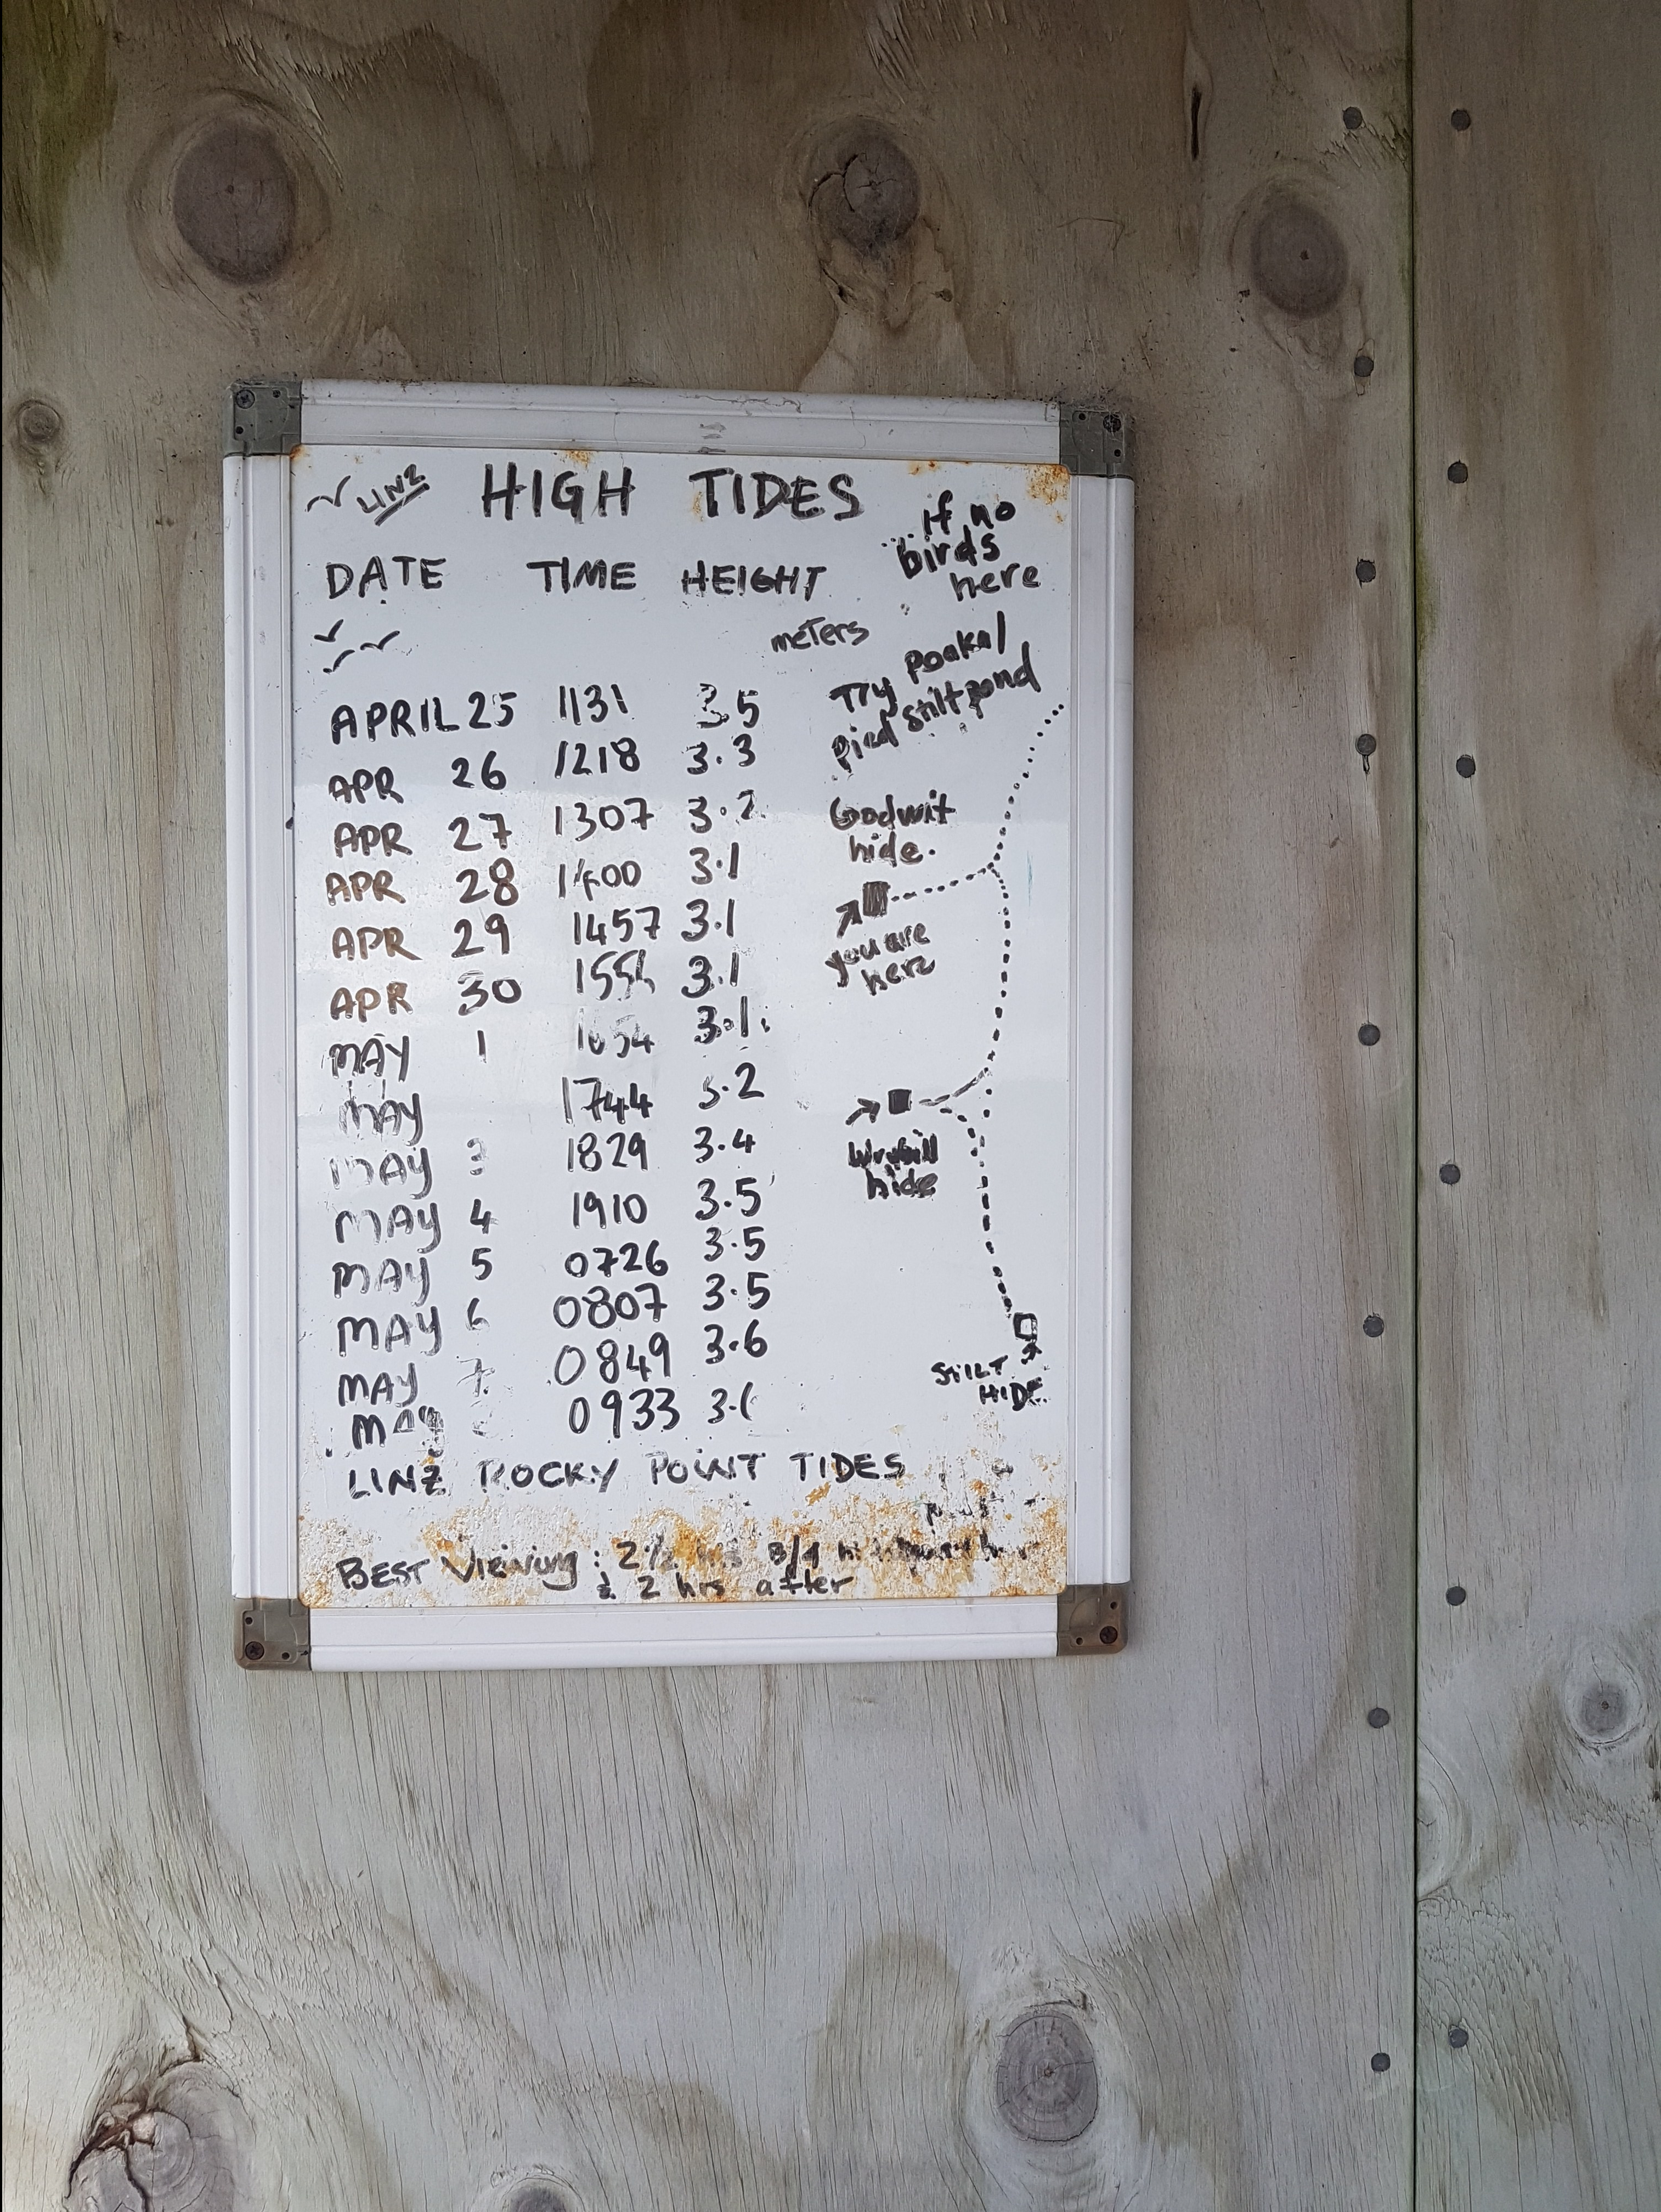 LINZ HIGH TIDES
DATE TIME HEIGHT
meters
APRIL 25 1131 3.5
APR 26 1218 3.3
APR 27 1307 3.2
APR 28 1400 3.1
APR 29 1457 3.1
APR 30 3.1
MAY 1 1654 3.1
MAY 1744 3.2
MAY 3 1829 3.4
MAY 4 1910 3.5
MAY 5 0726 3.5
MAY 6 0807 3.5
MAY 7 0849 3.6
MAY 0933
LINZ ROCKY POINT TIDES
BEST Viewing : 2½ hrs
& 2 hrs after
if no
birds
here
Try poaka/
pied stilt pond
Godwit
hide.
you are
here
Wrybill
hide
STILT
HIDE